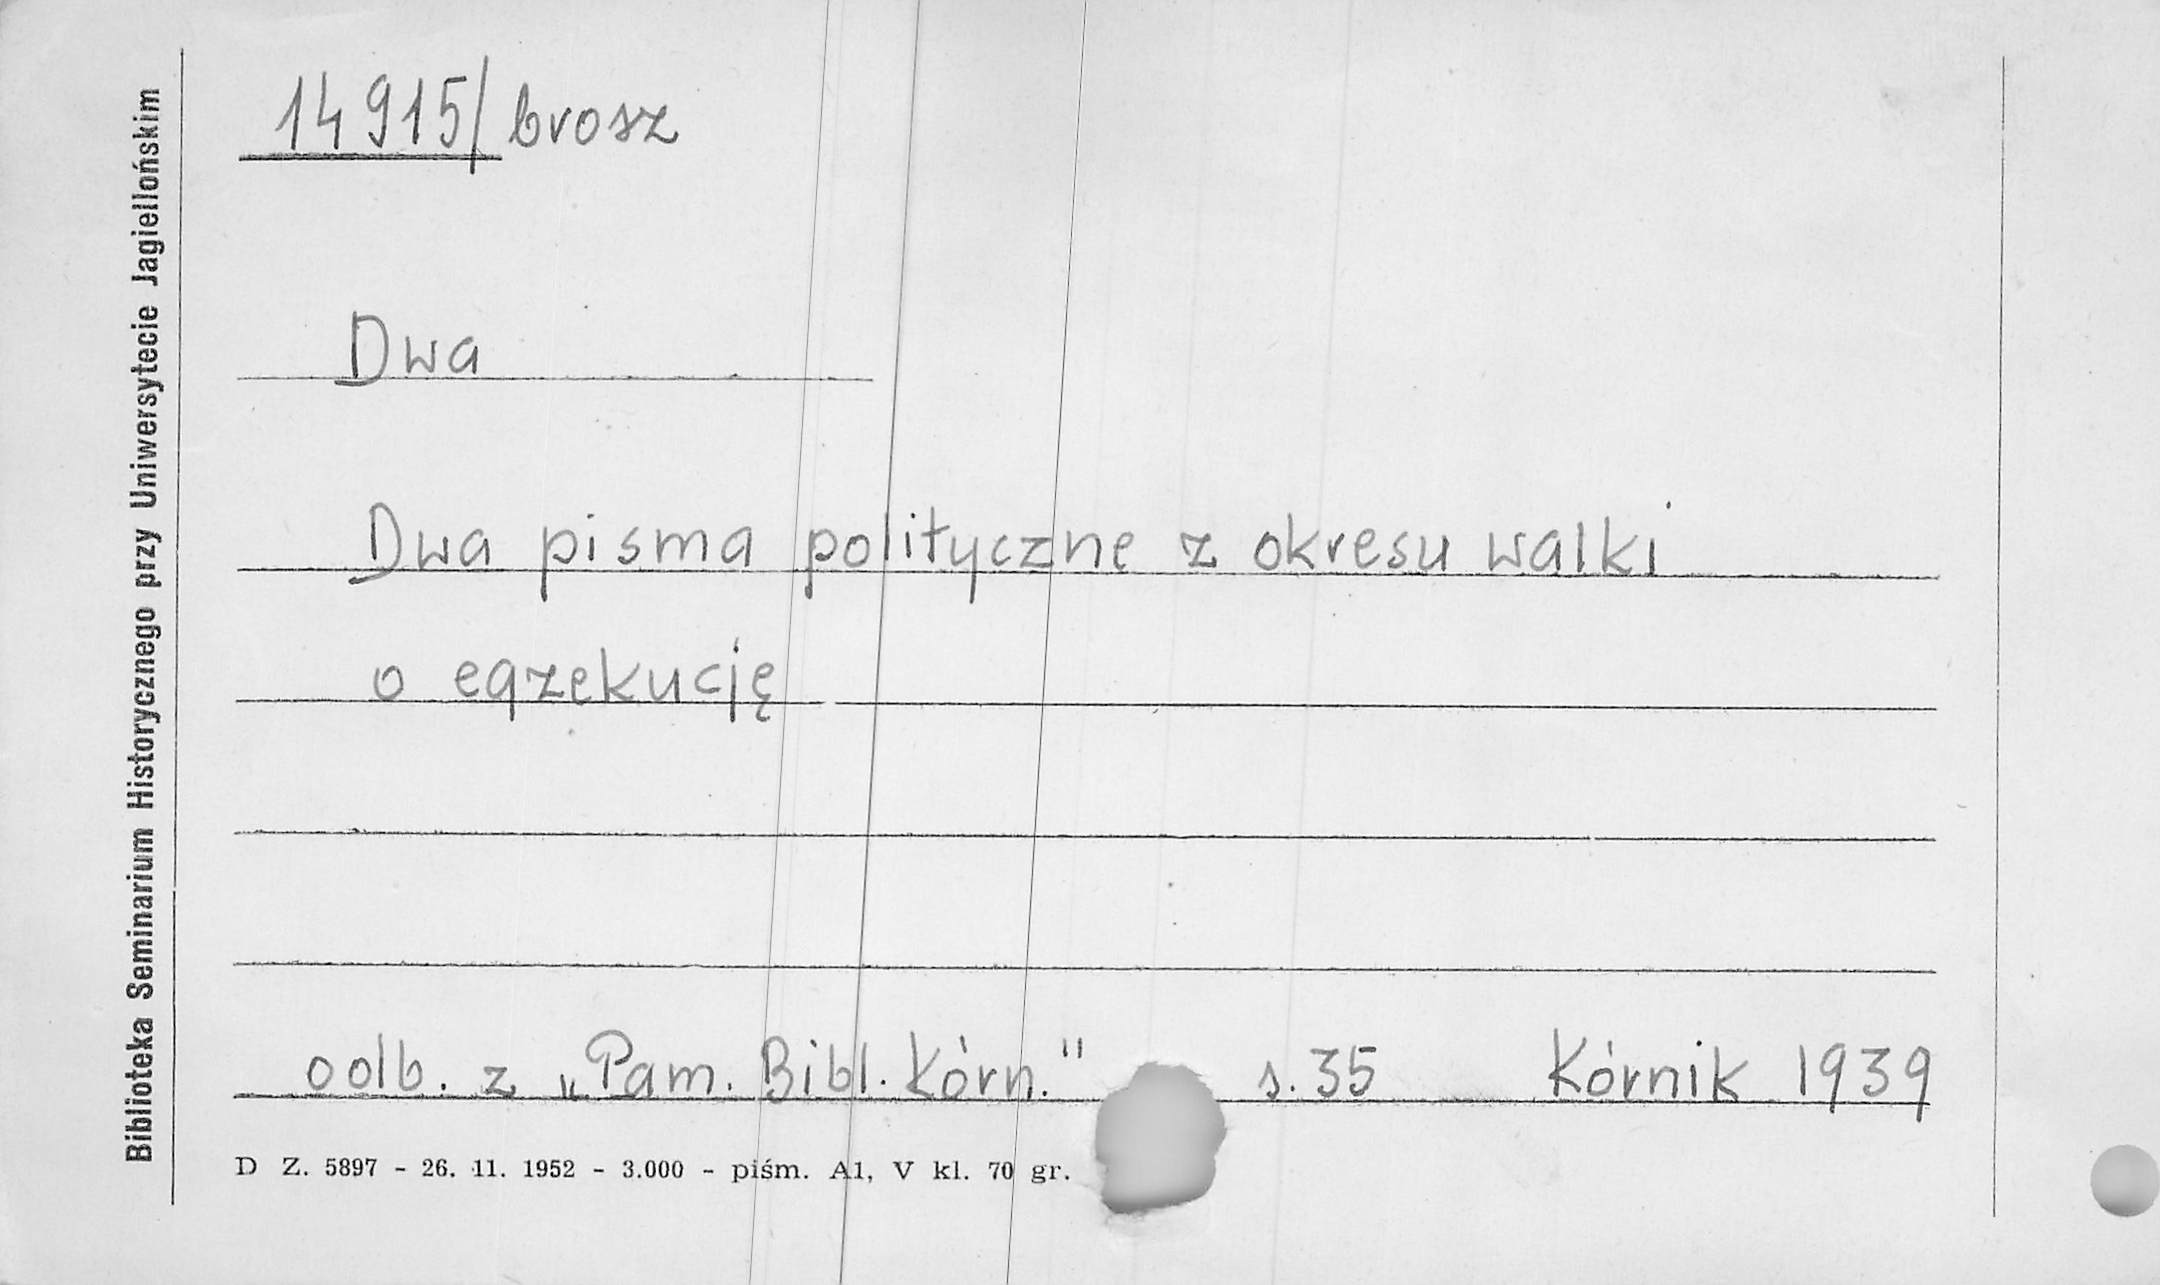 Biblioteka Seminarium Historycznego przy Uniwersytecie Jagiellońskim
14915/brosz
Dwa
Dwa pisma polityczne z okresu walki
o egzekucję
odb. z „Pam. Bibl. Kórn." s. 35 Kórnik 1939
D Z. 5897 - 26. 11. 1952 - 3.000 - piśm. A1, V kl. 70 gr.